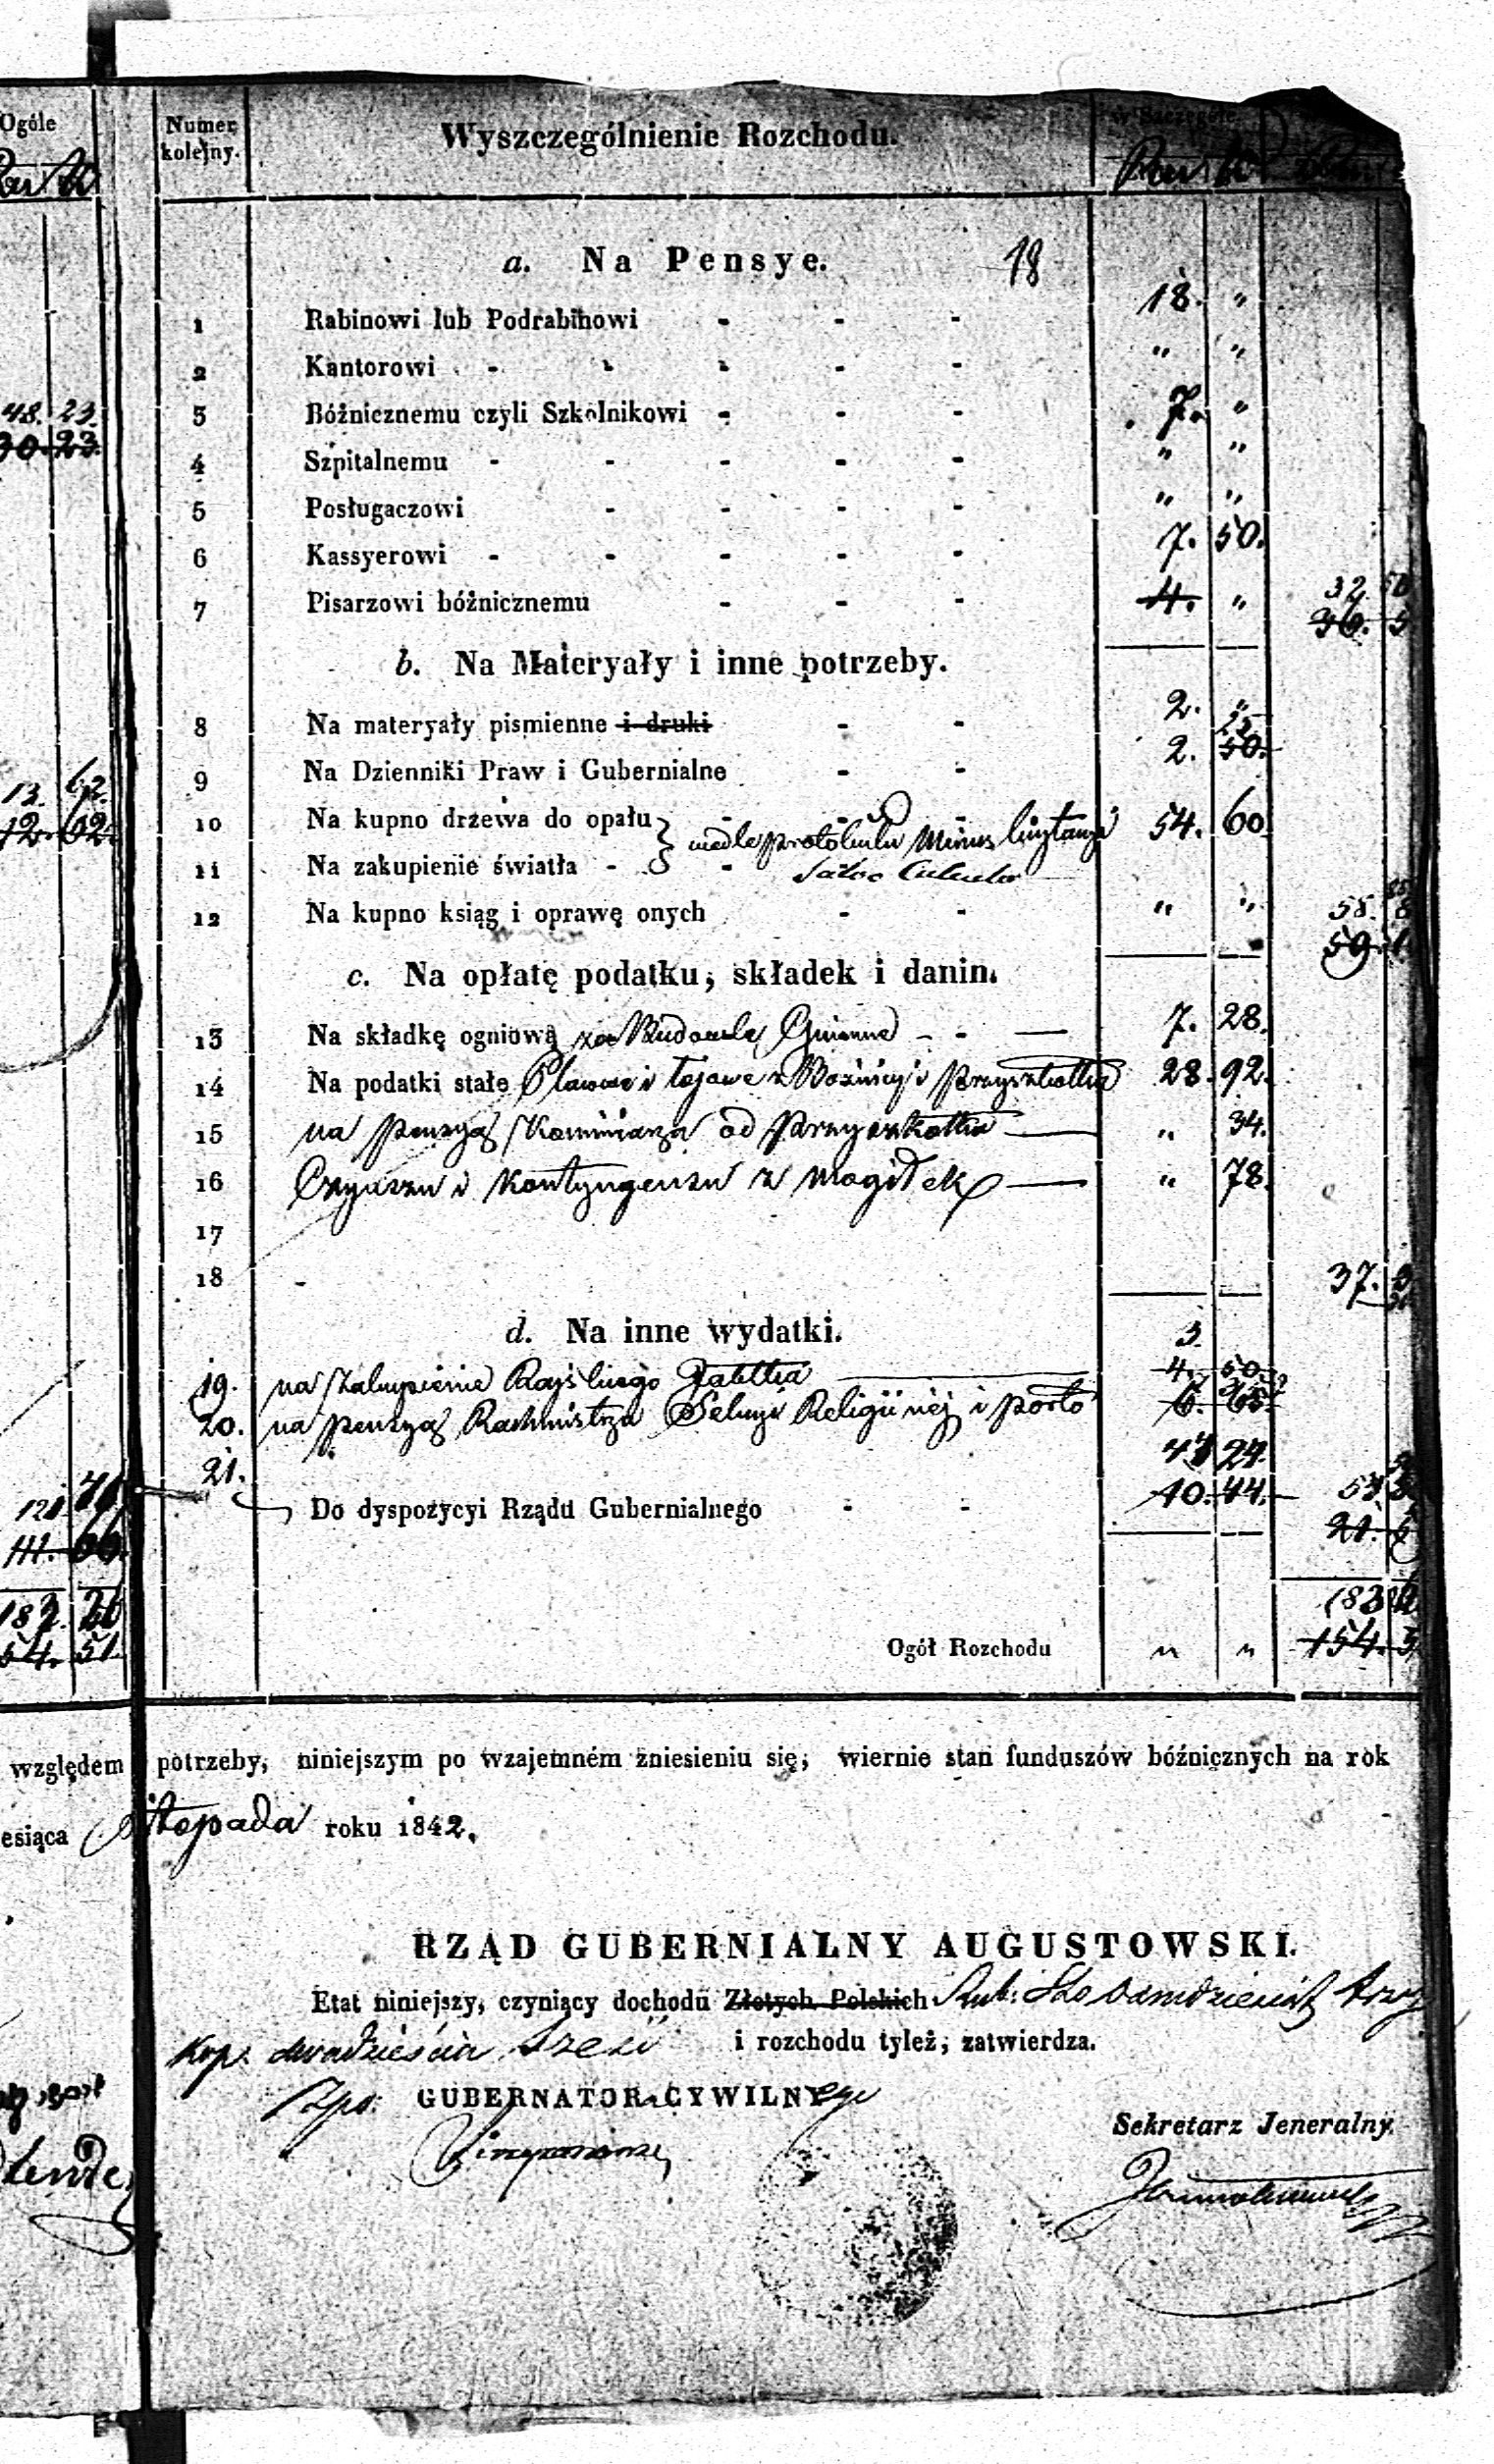 Ogóle
Numer kolejny.
Wyszczególnienie Rozchodu.
w Szczególe.
a. Na Pensye. 18
1 Rabinowi lub Podrabinowi - - - 18. "
2 Kantorowi - - - - - " "
3 Bóżnicznemu czyli Szkólnikowi - - - 7. "
48. 23.
30. 23.
4 Szpitalnemu - - - - - " "
5 Posługaczowi - - - - " "
6 Kassyerowi - - - - - 7. 50.
7 Pisarzowi bóżnicznemu - - - 4. " 32 50
36. 5
b. Na Materyały i inne potrzeby.
8 Na materyały pismienne i druki - - 2. "
25
9 Na Dzienniki Praw i Gubernialne - - 2. 50.
13. 62.
12. 62.
10 Na kupno drzewa do opału } wedle protokułu minus licytacyi 54. 60
11 Na zakupienie światła - - salvo Calculo
12 Na kupno ksiąg i oprawę onych - - " " 58. 85
59. 1
c. Na opłatę podatku, składek i danin.
13 Na składkę ogniową za Budowle Gminne - - — 7. 28.
14 Na podatki stałe z Bożnicy i przyszkółka 28. 92.
15 na pensyą Kominiarza od przyszkółka — " 34.
16 Czynszu i Kontyngensu z mogiłek — " 78.
17
18 - 37. 3
d. Na inne wydatki.
3.
19. na zakupienie Rajskiego Jabłka — 4. 50.
20. na pensyą Rachmistrza Sekcyi Religijnéj i porto 6. 65.
21. 24.
Do dyspozycyi Rządu Gubernialnego - - 10. 44.
21. 5
111. 66.
182. 26
54. 51
183
Ogół Rozchodu " " 154. 5
względem potrzeby, niniejszym po wzajemném zniesieniu się, wiernie stan funduszów bóźnicznych na rok
esiąca Listopada roku 1842.
RZĄD GUBERNIALNY AUGUSTOWSKI.
Etat niniejszy, czyniący dochodu Złotych Polskich Rub: Sto osmdziesiąt trzy
Kop. dwadzieścia sześć i rozchodu tyleż, zatwierdza.
GUBERNATORA CYWILNEgo
Sekretarz Jeneralny.